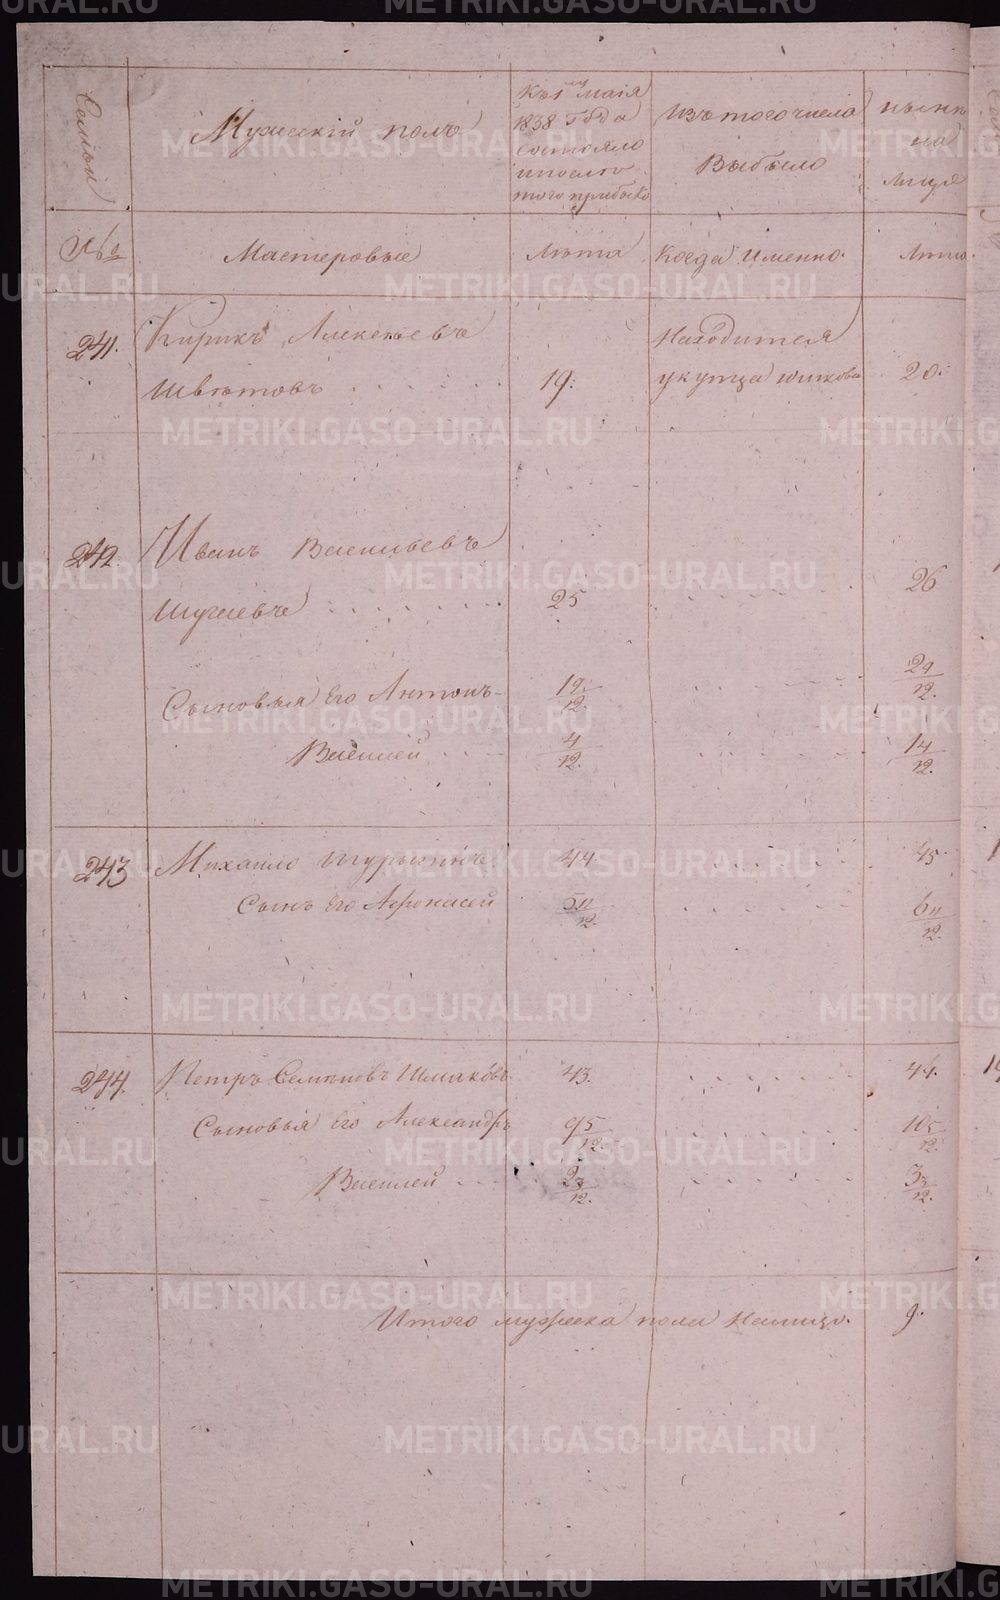 Семьи
Мужескій полъ
Къ 1му маія
1838 года
состояло
и после
того прибыло
Изъ того числа
Выбыло
ныне
на
лицо
№
Мастеровые
Лета
Когда именно.
Лета
241.
Кирикъ Алексеевъ
Находится
Шветовъ
19.
у купца
20.
242.
Иванъ Васильевъ
25
26
Сыновья Его Антонъ
Василей
4/12.
14/12.
243
Михаило
44.
45.
Сынъ Его Афонасей
5 11/12.
6 11/12.
244.
Петръ Семеновъ Шмаковъ
43.
44.
Сыновья Его Александръ
9 5/12.
10 5/12.
Василей
2 3/12.
3 3/12.
Итого мужеска пола налицо.
9.
METRIKI.GASO-URAL.RU